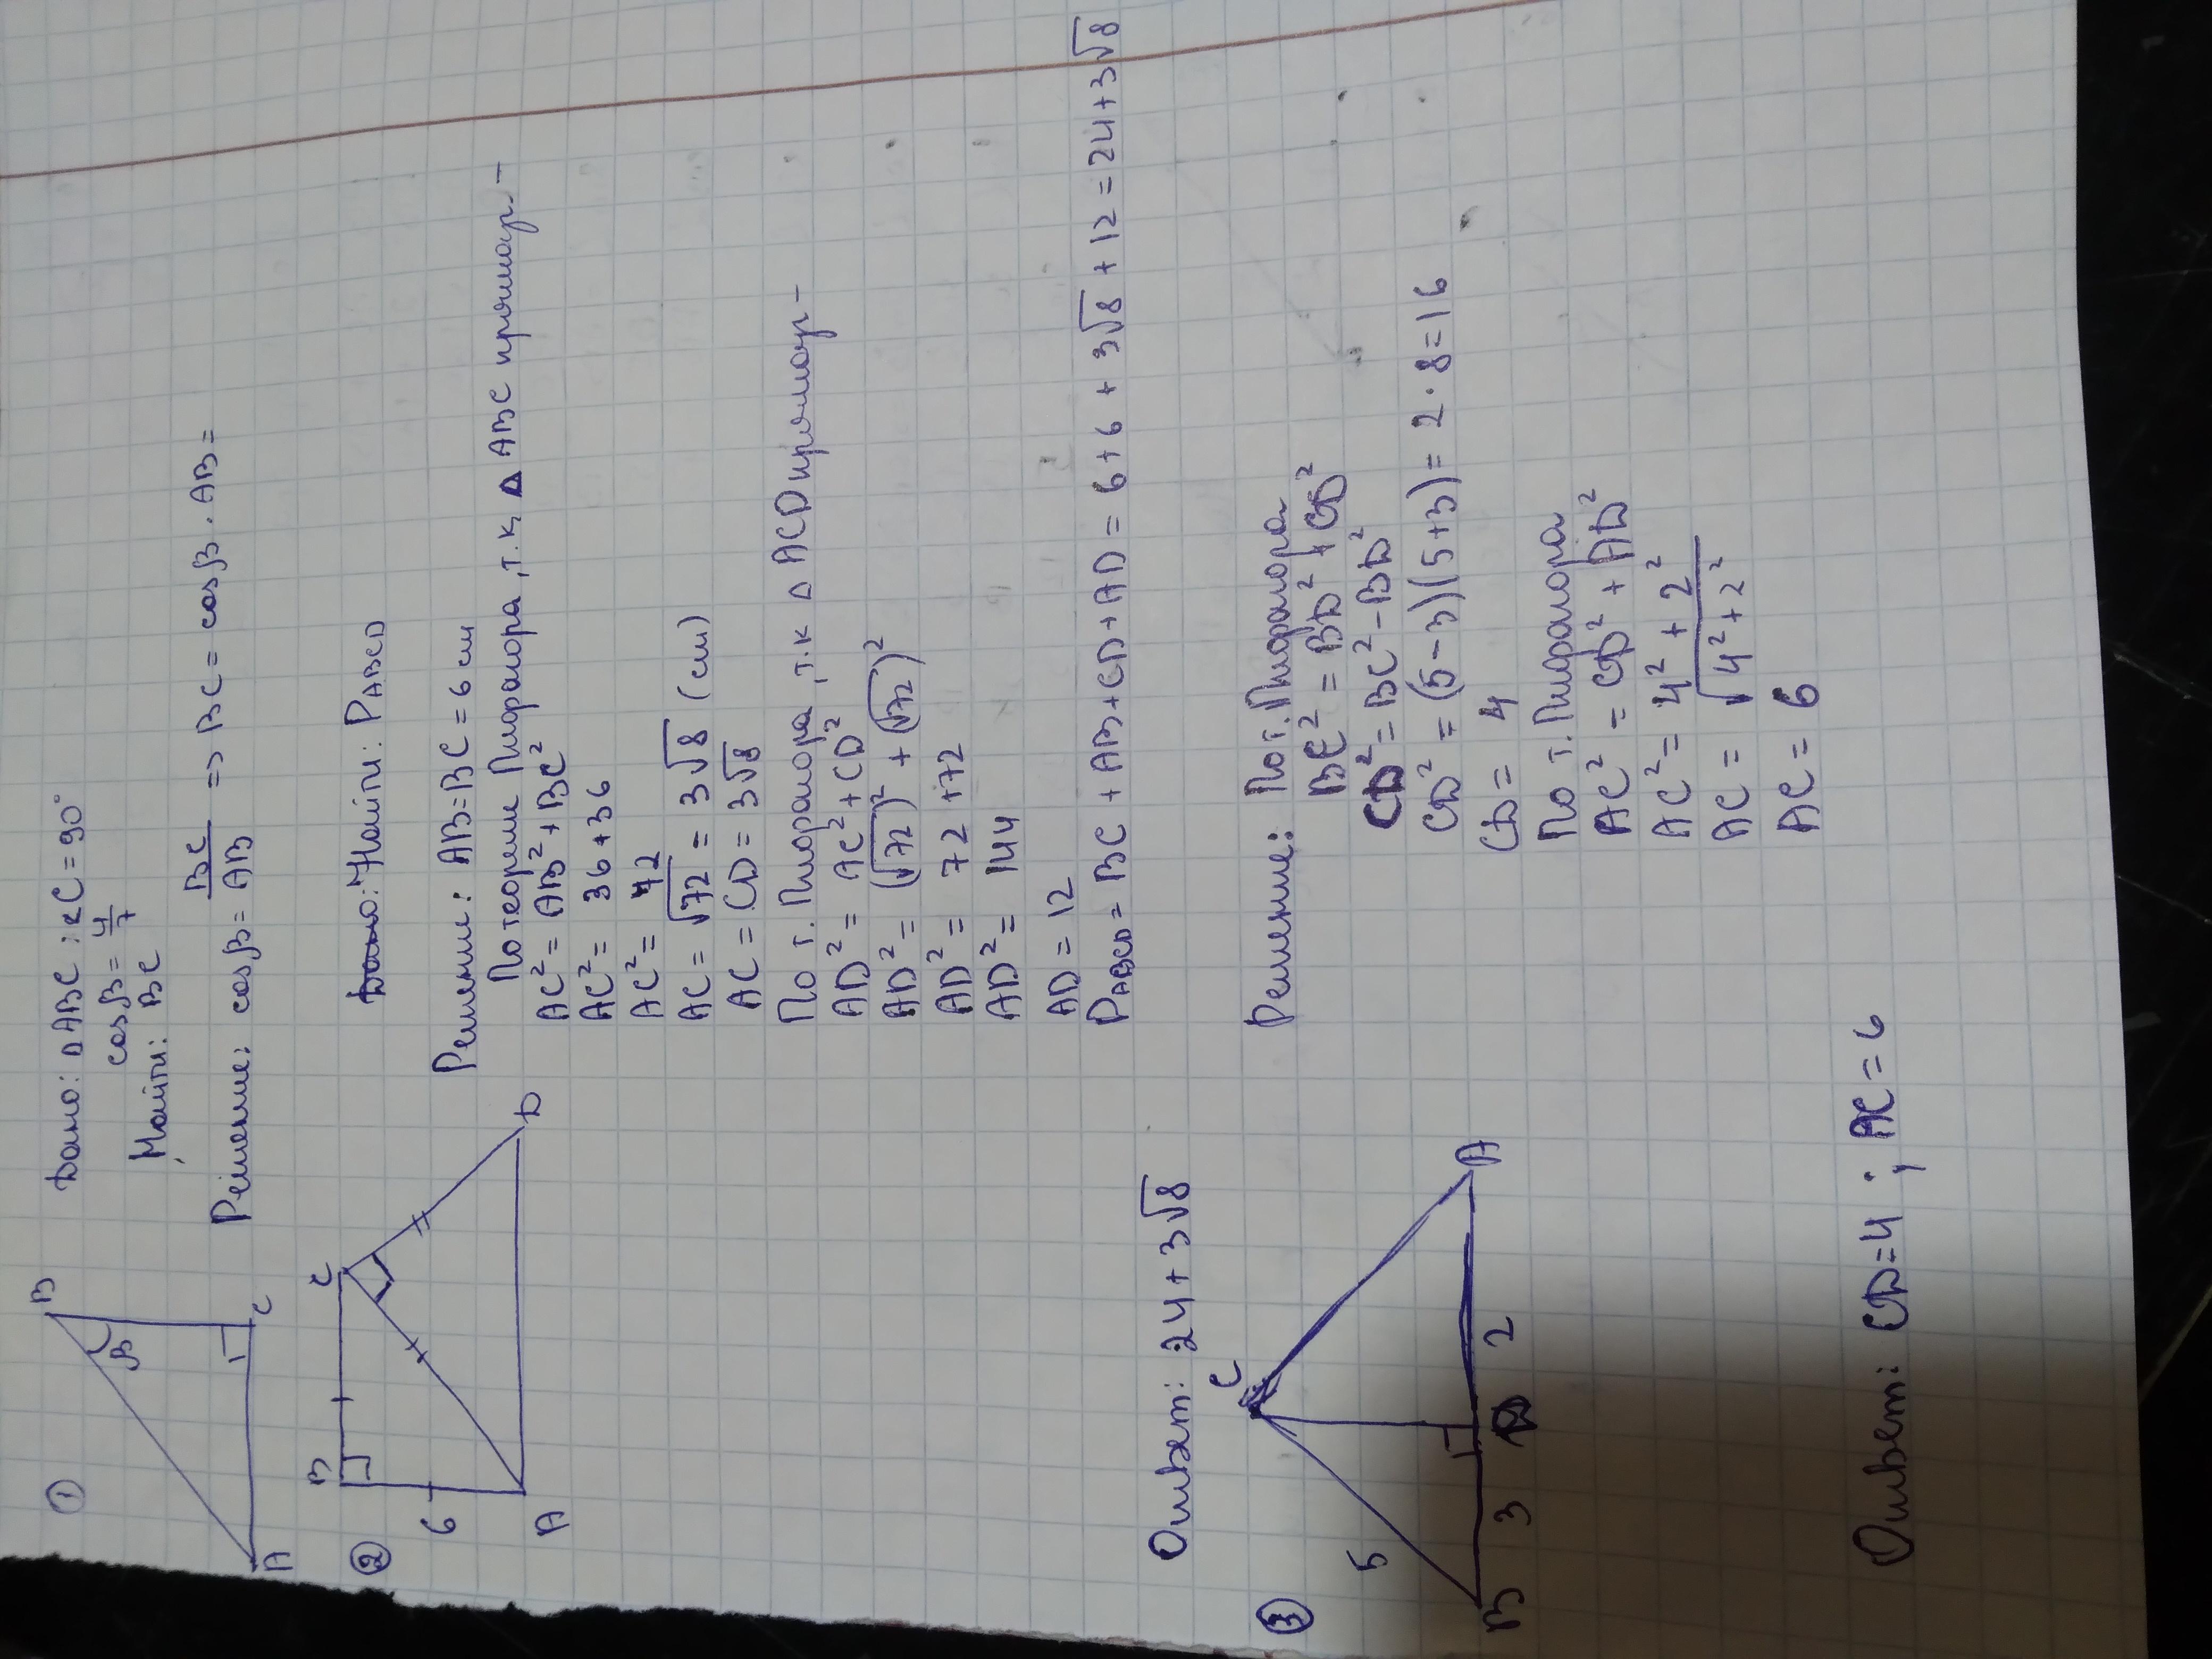 ①
B
β
A
C
Дано: △ABC: ∠C = 90°
cos β = 4/7
Найти: BC
Решение: cos β = BC/AB => BC = cos β · AB =
②
B
C
6
A
D
Найти: P ABCD
Решение: AB = BC = 6 см
По теореме Пифагора, т.к. △ ABC прямоуг-
AC² = AB² + BC²
AC² = 36 + 36
AC² = 72
AC = √72 = 3√8 (см)
AC = CD = 3√8
По т. Пифагора, т.к △ ACD прямоуг-
AD² = AC² + CD²
AD² = (√72)² + (√72)²
AD² = 72 + 72
AD² = 144
AD = 12
P ABCD = BC + AB + CD + AD = 6 + 6 + 3√8 + 12 = 24 + 3√8
Ответ: 24 + 3√8
③
C
5
B
3
D
2
A
Решение: По т. Пифагора
BC² = BD² + CD²
CD² = BC² - BD²
CD² = (5 - 3)(5 + 3) = 2 · 8 = 16
CD = 4
По т. Пифагора
AC² = CD² + AD²
AC² = 4² + 2²
AC = √4² + 2²
AC = 6
Ответ: CD = 4 ; AC = 6